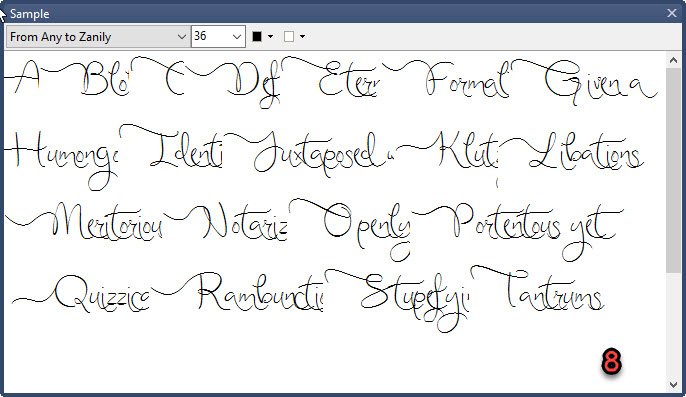 Sample
From Any to Zanily 36
A Blo C Def Eterr Formal Given a
Humongo Identi Juxtaposed Klut Libations
Meritoriou Notariz Openly Portentous yet
Quizzica Rambuncti Stupefyi Tantrums
8